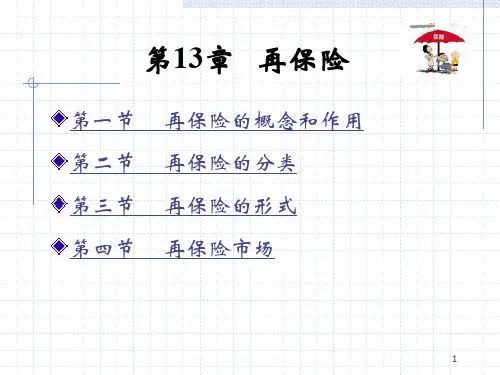 保险
第13章 再保险
第一节 再保险的概念和作用
第二节 再保险的分类
第三节 再保险的形式
第四节 再保险市场
1